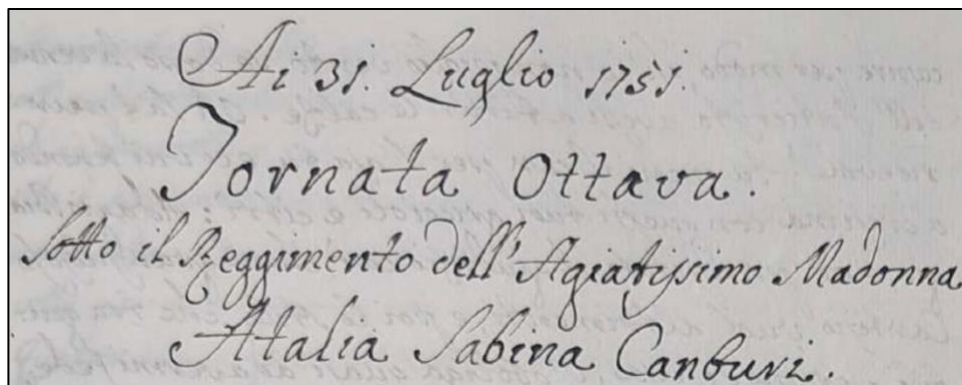 Ai 31. Luglio 1751.
Tornata Ottava.
Sotto il Reggimento dell'Agiatissimo Madonna
Atalia Sabina Canburi.